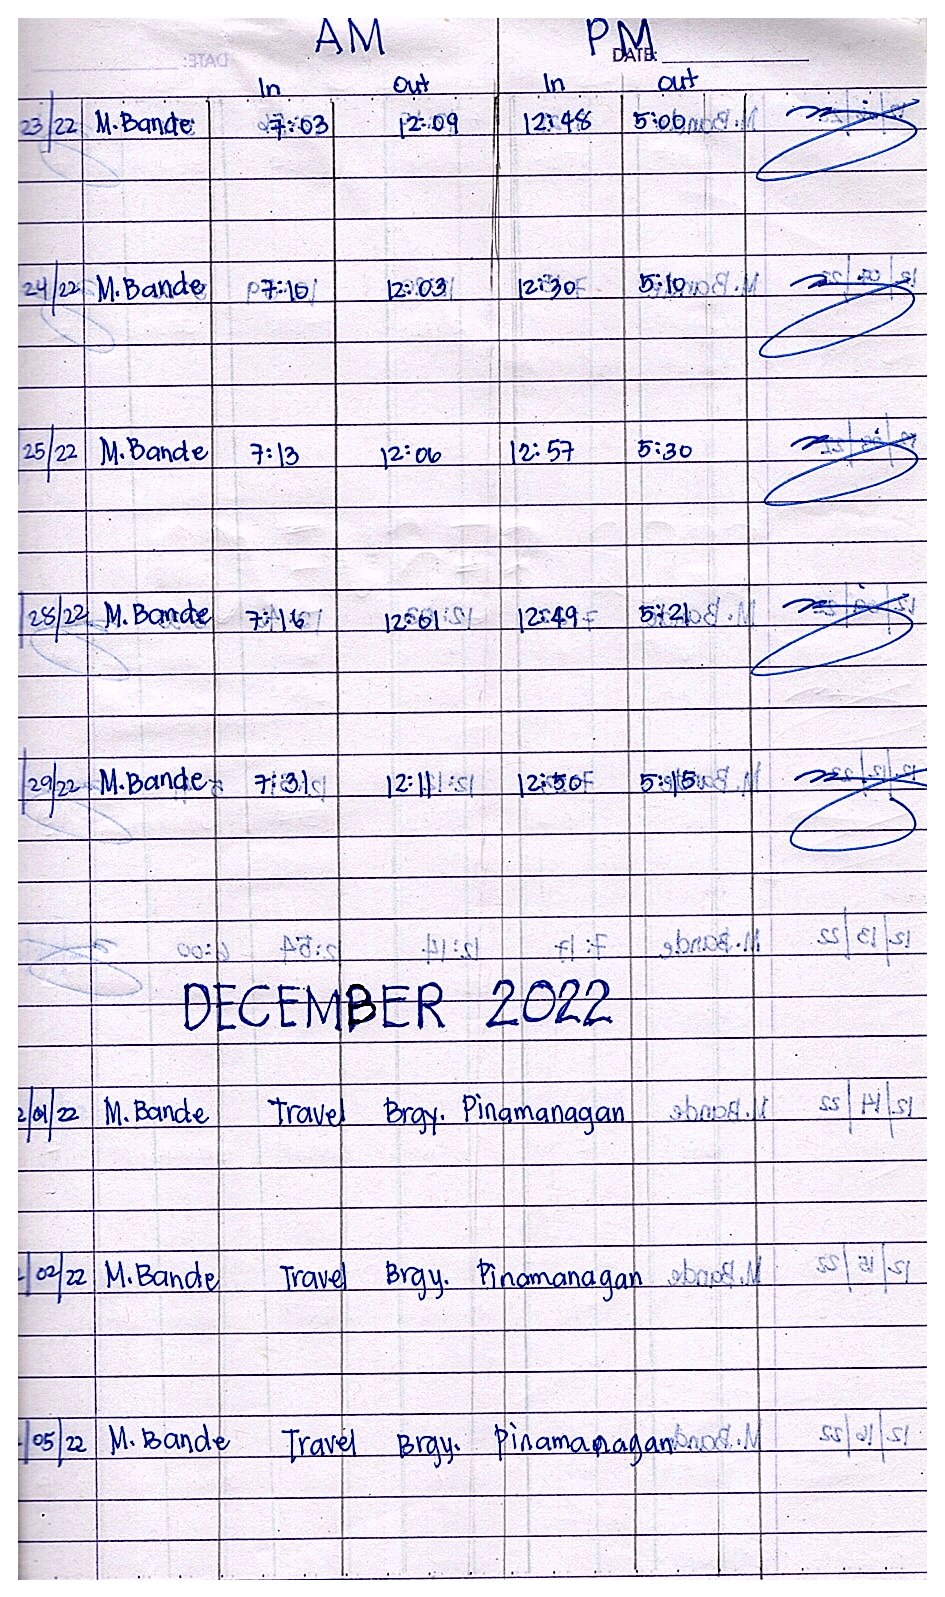 AM PM
DATE:
In Out In out
23/22 M. Bande 7:03 12:09 12:48 5:00
24/22 M. Bande 7:10 12:03 12:30 5:10
25/22 M. Bande 7:13 12:06 12:57 5:30
28/22 M. Bande 7:16 12:01 12:49 5:21
29/22 M. Bande 7:31 12:11 12:50 5:15
DECEMBER 2022
2/01/22 M. Bande Travel Brgy. Pinamanagan
/02/22 M. Bande Travel Brgy. Pinamanagan
/05/22 M. Bande Travel Brgy. Pinamanagan